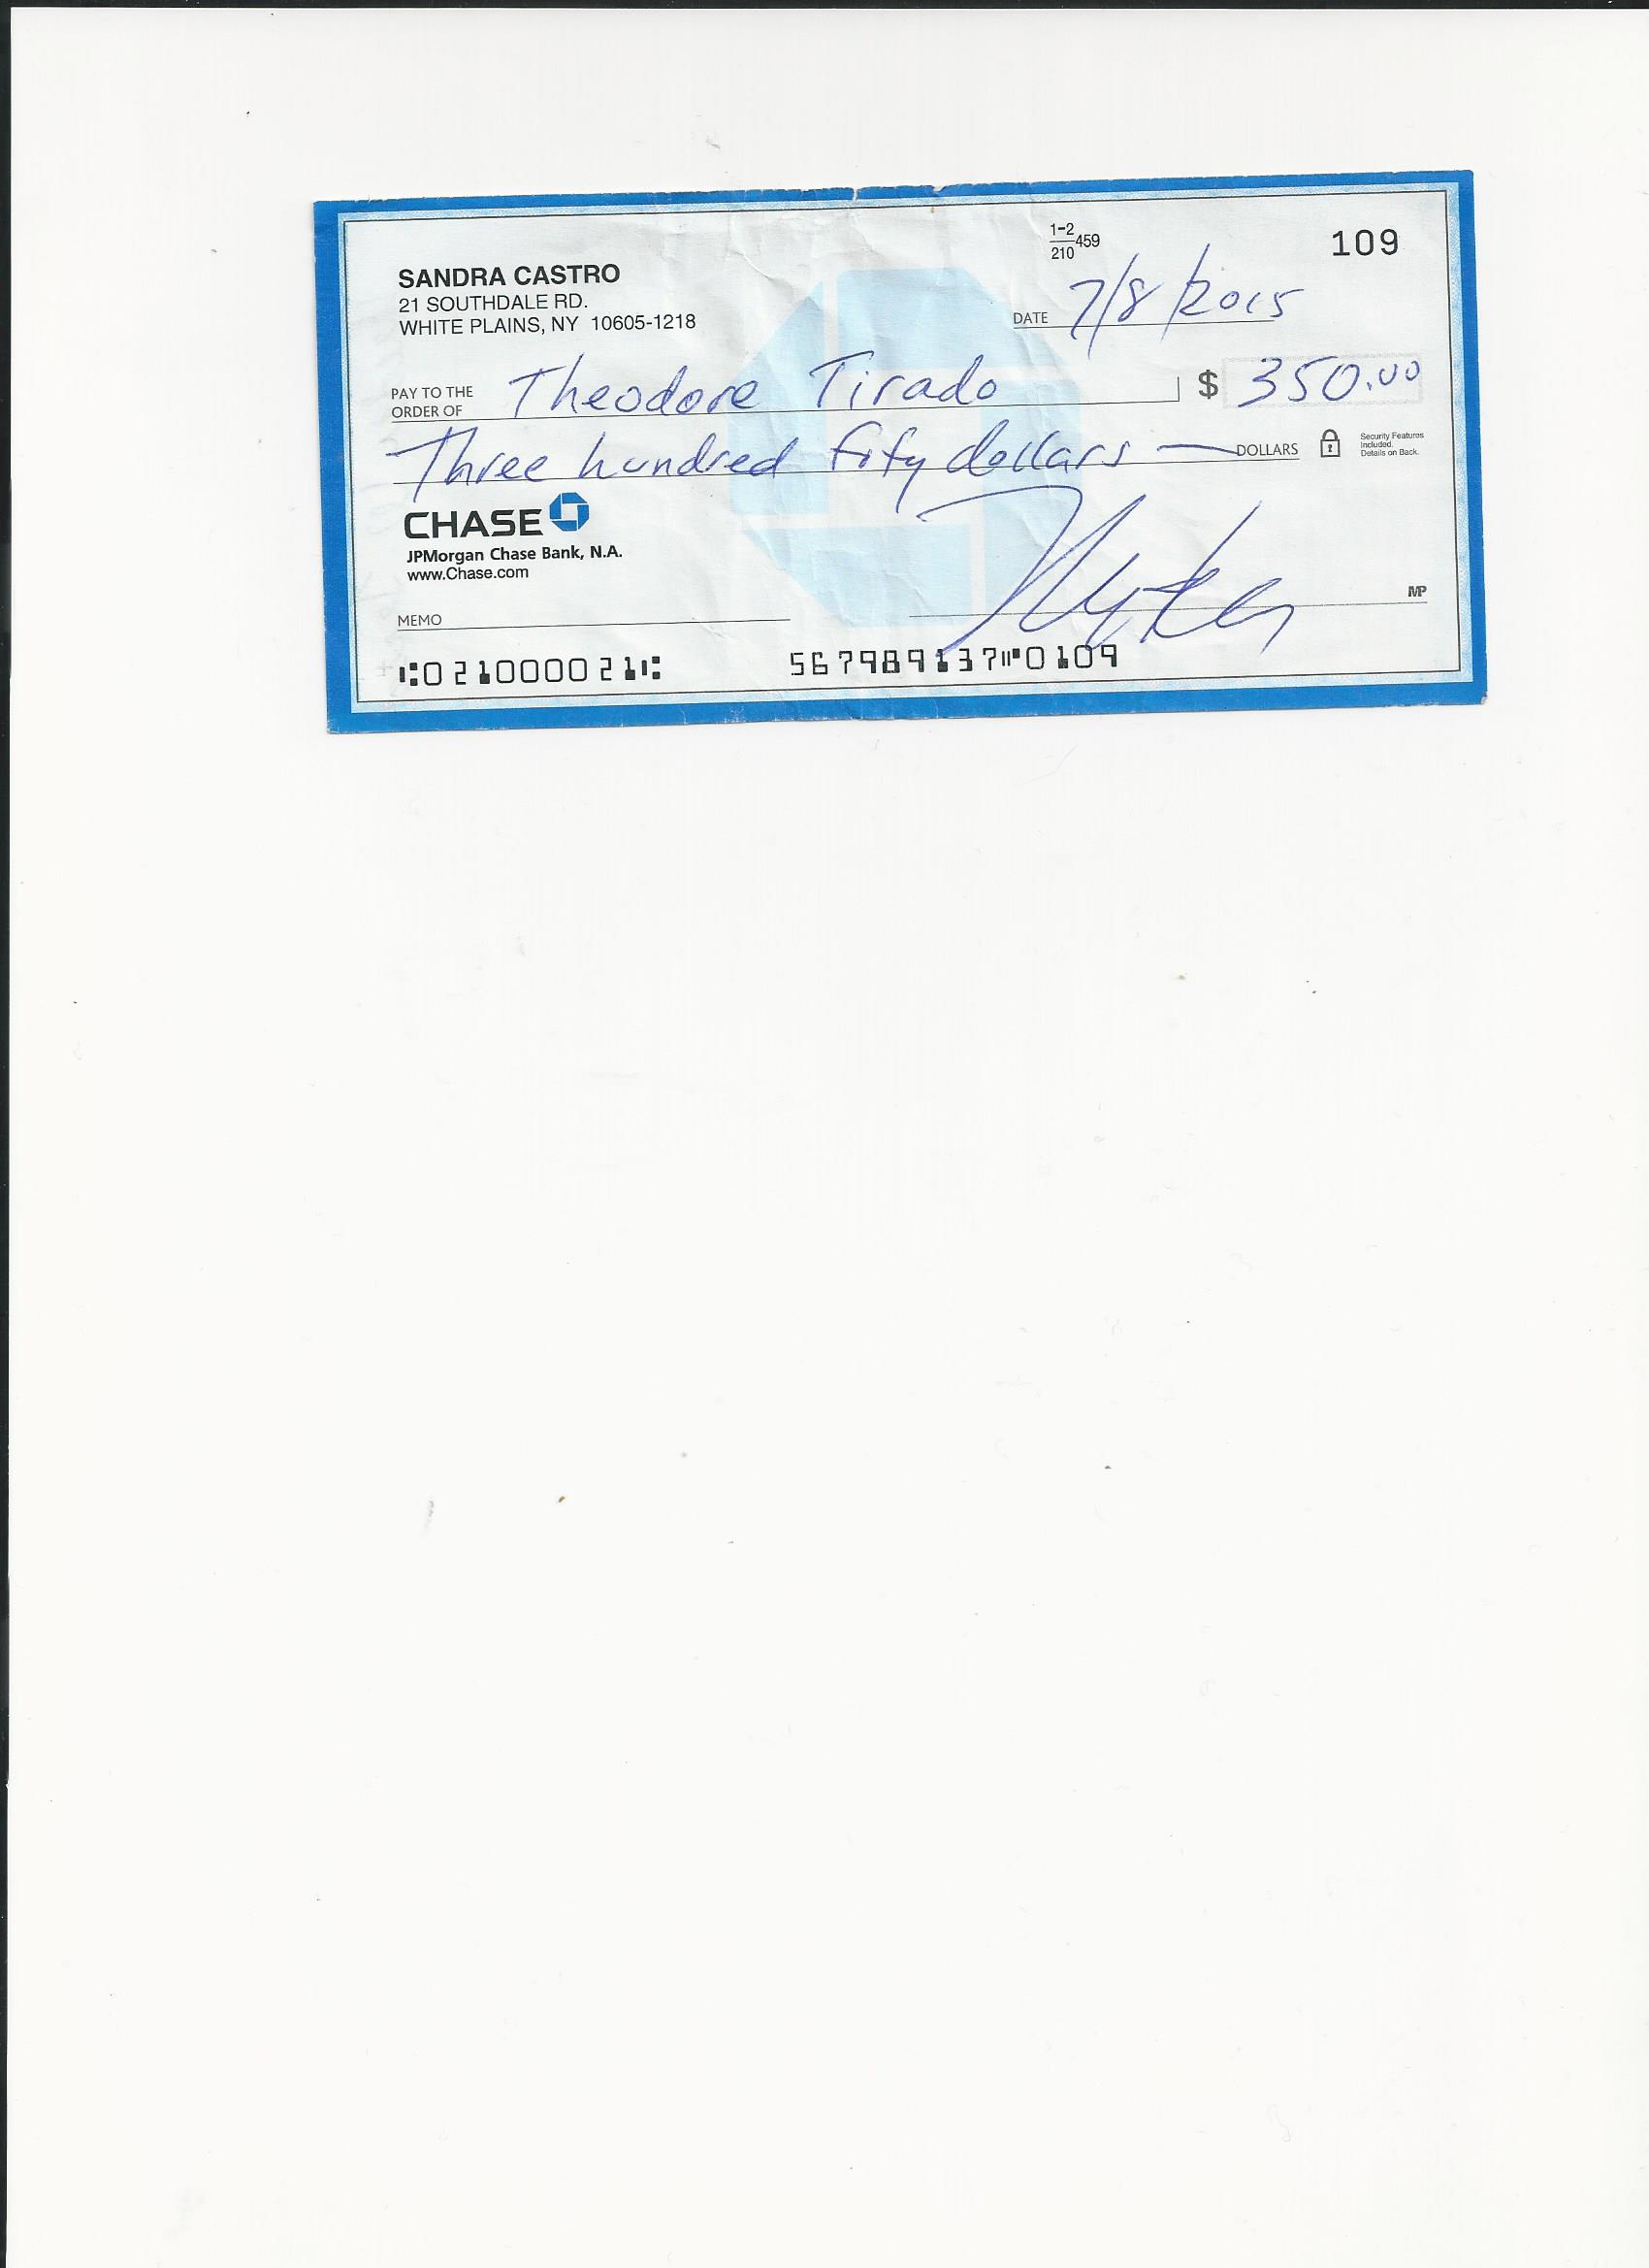 1-2
210 459
109
SANDRA CASTRO
21 SOUTHDALE RD.
WHITE PLAINS, NY 10605-1218
DATE 7/8/2015
PAY TO THE
ORDER OF Theodore Tirado $ 350.00
Three hundred fify dollars — DOLLARS
Security Features
Included.
Details on Back.
CHASE
JPMorgan Chase Bank, N.A.
www.Chase.com
MEMO
MP
⑆021000021⑆ 567989137⑈0109